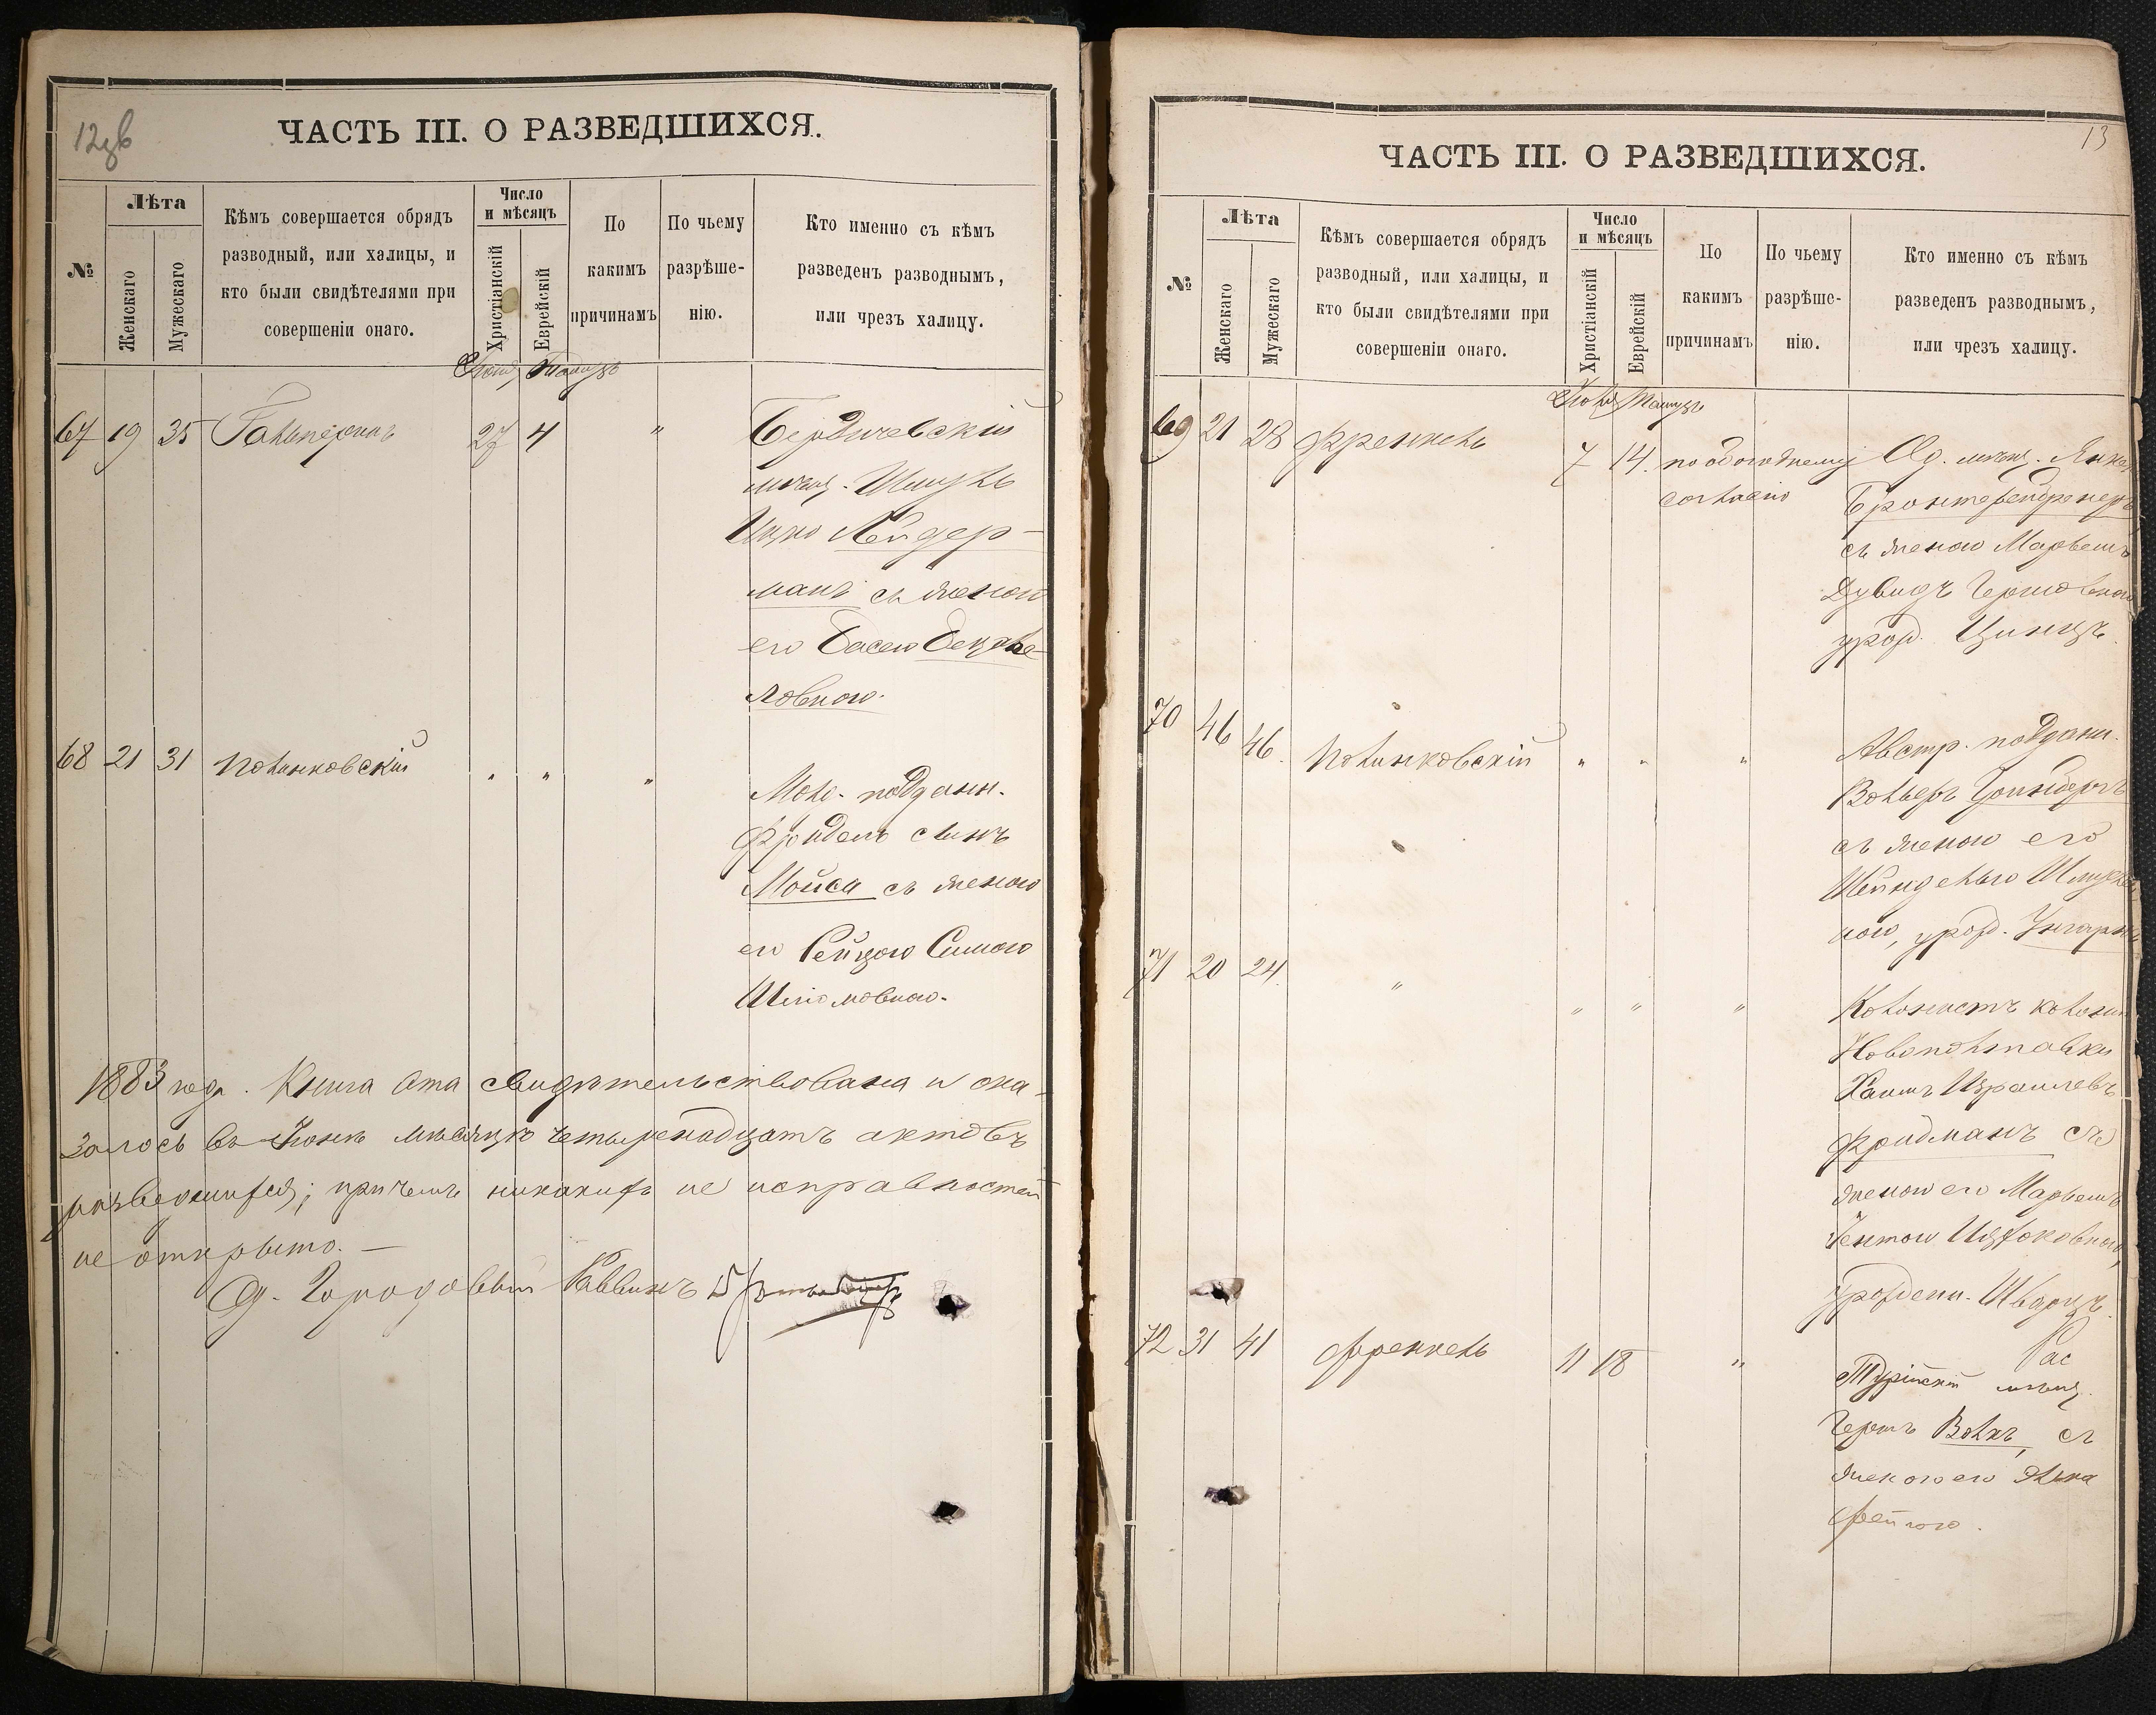 12 об
ЧАСТЬ III. О РАЗВЕДШИХСЯ.
№
Лѣта
Женскаго
Мужескаго
Кѣмъ совершается обрядъ
разводный, или халицы, и
кто были свидѣтелями при
совершеніи онаго.
Число
и мѣсяцъ
Христіанскій
Еврейскій
По
какимъ
причинамъ
По чьему
разрѣше-
нію.
Кто именно съ кѣмъ
разведенъ разводнымъ,
или чрезъ халицу.
67 19 35 Гальперинъ 27 4 " Бердичевскій
мѣщ. Шмуль
Ицко Лейдер-
манъ съ женою
его Басею Бецале-
ловною.
68 21 31 Полинковскій " " "
Молд. подданн.
съ женою
его Рейзою Симою
Шліомовною.
1883 года. Книга эта свидѣтельствована и ока-
залось въ Іюнѣ мѣсяцѣ четырнадцать актовъ
разведшихся; при чемъ никакихъ не исправностей
не открыто. —
Од. Городовый Раввинъ
13
ЧАСТЬ III. О РАЗВЕДШИХСЯ.
№
Лѣта
Женскаго
Мужескаго
Кѣмъ совершается обрядъ
разводный, или халицы, и
кто были свидѣтелями при
совершеніи онаго.
Число
и мѣсяцъ
Христіанскій
Еврейскій
По
какимъ
причинамъ
По чьему
разрѣше-
нію.
Кто именно съ кѣмъ
разведенъ разводнымъ,
или чрезъ халицу.
Іюль Тамузъ
69 21 28 Френкель 7 14. по обоюдному Од. мѣщ.
согласію
съ женою Марьемъ
Дувидъ Гершовною
урожд. Цинцъ.
70 46 46. Полинковскій " " "
Австр. подданн.
Вольфъ Гринбергъ
съ женою его
Шейнделью
ною, урожд.
71 20 24. " " " "
Колонистъ колоніи
Новополтавки
Хаимъ Израилевъ
Фридманъ съ
женою его Марьемъ
Іентою Ицхоковною,
урожденн. Шварцъ.
72 31 41 Френкель 11 18 "
мѣщ.
Гершъ Волкъ, съ
женою его Элька
Фейгою.